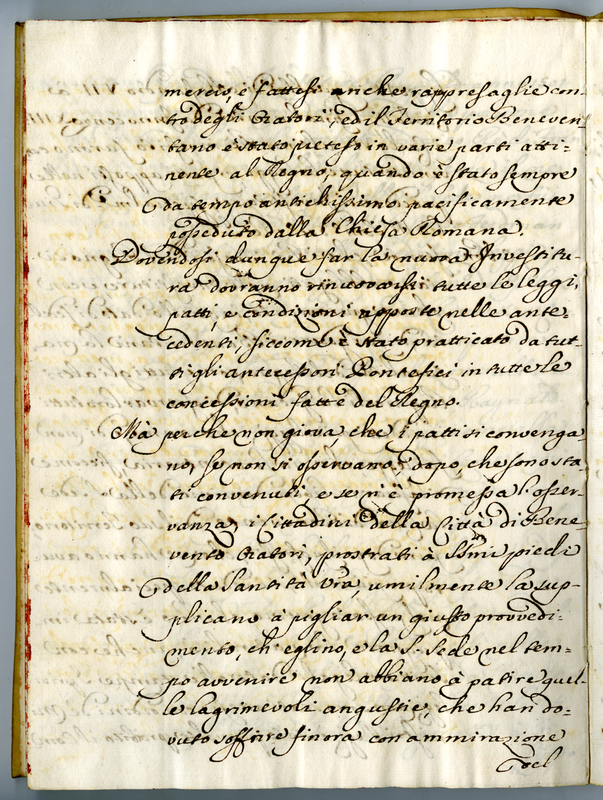 mercio, e fattesi anche rappresaglie con-
to degli Oratori, ed il Territorio Beneven-
tano è stato preteso in varie parti atti=
nente al Regno, quando è stato sempre
da tempo antichissimo pacificamente
posseduto dalla Chiesa Romana.
Dovendosi dunque far la nuova Investitu=
ra dovranno rinuovarsi tutte le leggi,
patti, e condizioni apposte nelle ante=
cedenti, siccome è stato pratticato da tut=
ti gli antecessori Pontefici in tutte le
concessioni fatte del Regno.
Mà perche non giova, che i patti si convenga=
no, se non si osservano, dopo, che sono sta=
ti convenuti, e se n'è promessa l'osser=
vanza, i Cittadini della Città di Bene
vento Oratori, prostrati à SSmi piedi
della Santità Vra, umilmente la sup=
plicano à pigliar un giusto provvedi=
mento, ch'eglino, e la S. Sede nel tem=
po avvenire non abbiano à patire quel=
le lagrimevoli angustie, che han do=
vuto soffrire finora con ammirazione
del